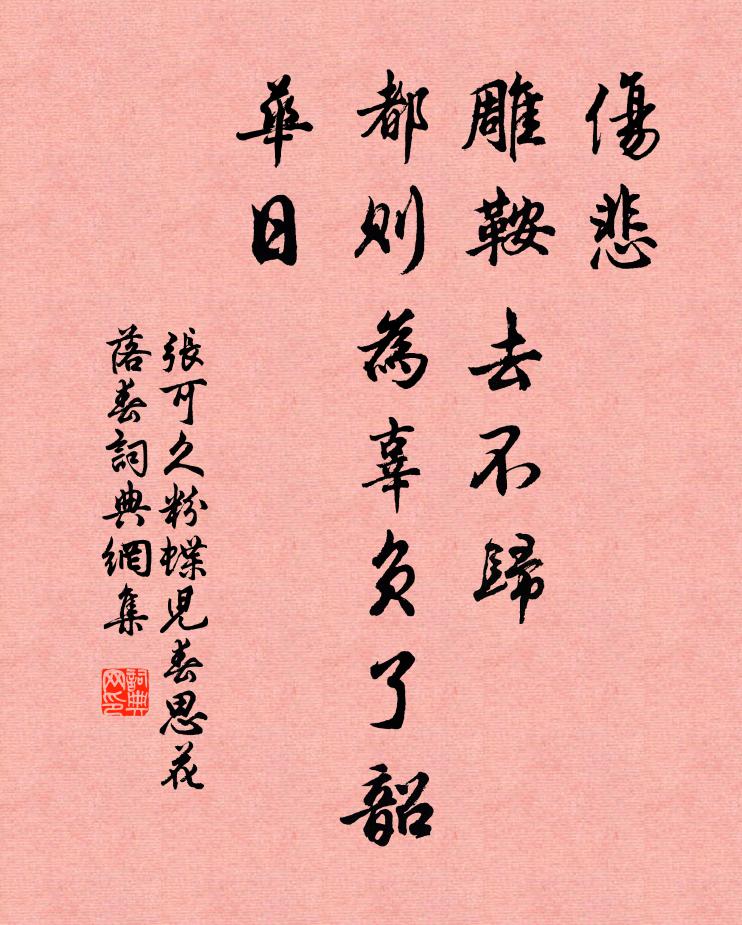 傷悲
雕鞍去不歸
都則為辜負了韶
華日
張可久粉蝶兒春思花
落春詞典網集
詞典
网印